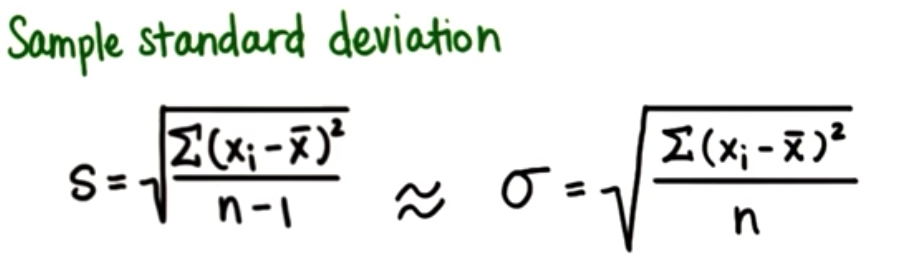 Sample standard deviation
s = √(Σ(xᵢ - x̄)² / (n - 1)) ≈ σ = √(Σ(xᵢ - x̄)² / n)